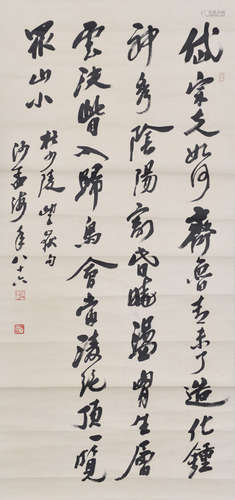 岱宗夫如何齊魯青未了造化鍾
神秀陰陽割昏曉盪胸生層
雲決眥入歸鳥會當淩絕頂一覽
眾山小
杜少陵望嶽句
沙孟海年八十六